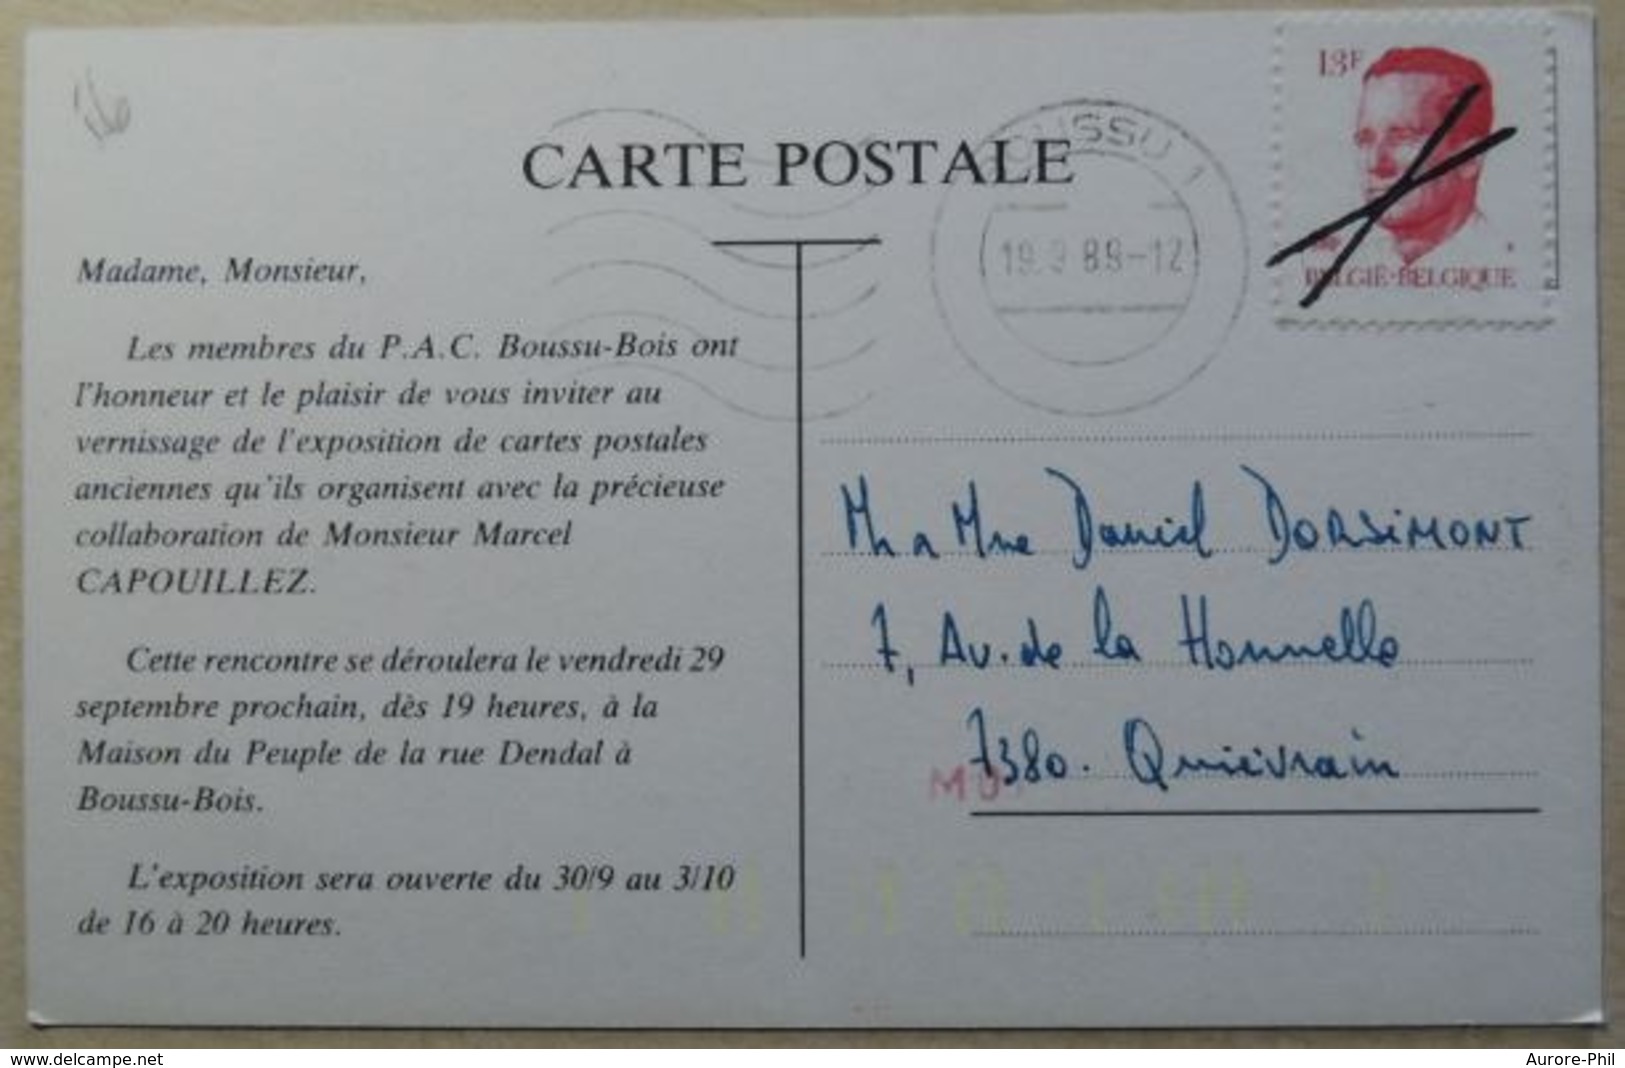 CARTE POSTALE
13F
BELGIË-BELGIQUE
19. 9 89-12
Madame, Monsieur,
Les membres du P.A.C. Boussu-Bois ont
l'honneur et le plaisir de vous inviter au
vernissage de l'exposition de cartes postales
anciennes qu'ils organisent avec la précieuse
collaboration de Monsieur Marcel
CAPOUILLEZ.
Cette rencontre se déroulera le vendredi 29
septembre prochain, dès 19 heures, à la
Maison du Peuple de la rue Dendal à
Boussu-Bois.
L'exposition sera ouverte du 30/9 au 3/10
de 16 à 20 heures.
Mme Daniel DORSIMONT
7, Av. de la Honnelle
7380. Quiévrain
www.delcampe.net
Aurore-Phil